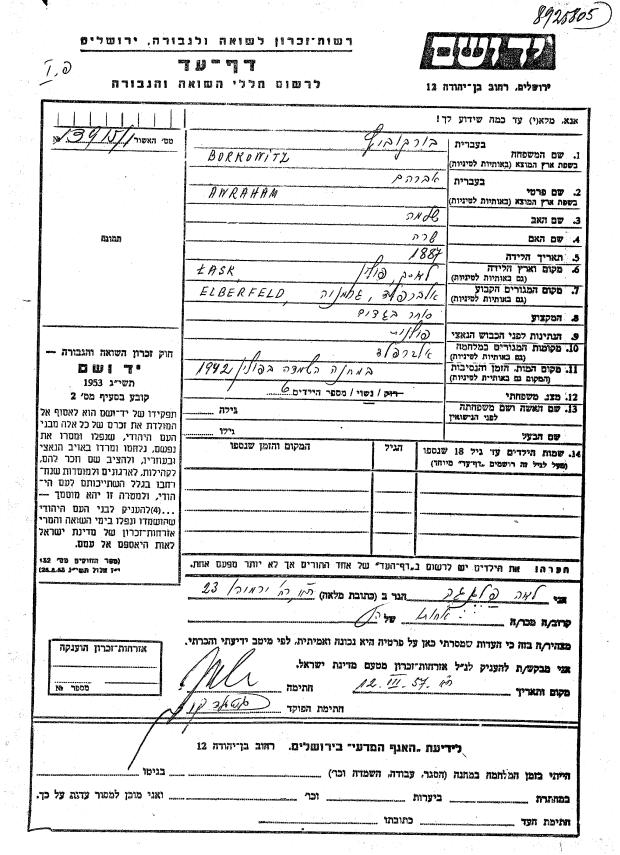 8925805
רשות-זכרון לשואה ולגבורה, ירושלים
דף-עד
לרשום חללי השואה והגבורה
יד ושם
ירושלים, רחוב בן-יהודה 12
אנא, מלא(י) עד כמה שידוע לך!
מס' האשור
תמונה
1. שם המשפחה בעברית בורקוביץ
בשפת ארץ המוצא (באותיות לטיניות) BORKOWITZ
2. שם פרטי בעברית אברהם
בשפת ארץ המוצא (באותיות לטיניות) AWRAHAM
3. שם האב שלמה
4. שם האם שרה
5. תאריך הלידה 1887
6. מקום וארץ הלידה (גם באותיות לטיניות) פולין ŁASK,
7. מקום המגורים הקבוע (גם באותיות לטיניות) אלברפלד, גרמניה ELBERFELD,
8. המקצוע סוחר בגדים
9. הנתינות לפני הכבוש הנאצי פולנית
10. מקומות המגורים במלחמה (גם באותיות לטיניות) אלברפלד
11. מקום המות, הזמן והנסיבות (המקום גם באותיות לטיניות) במחנה השמדה בפולין 1942
12. מצב משפחתי רווק / נשוי / מספר הילדים 6
13. שם האשה ושם משפחתה לפני הנישואין גילה
שם הבעל גילו
14. שמות הילדים עד גיל 18 שנספו הגיל המקום והזמן שנספו
(מעל לגיל זה רושמים "דף-עד" מיוחד)
הערה! את הילדים יש לרשום ב"דף-העד" של אחד ההורים אך לא יותר מפעם אחת.
חוק זכרון השואה והגבורה —
יד ושם
תשי"ג 1953
קובע בסעיף מס' 2
תפקידו של יד-ושם הוא לאסוף אל
המולדת את זכרם של כל אלה מבני
העם היהודי, שנפלו ומסרו את
נפשם, נלחמו ומרדו באויב הנאצי
ובעוזריו, ולהציב שם וזכר להם,
לקהילות, לארגונים ולמוסדות שנח־
רבו בגלל השתייכותם לעם הי־
הודי, ולמטרה זו יהא מוסמך —
...(4) להעניק לבני העם היהודי
שהושמדו ונפלו בימי השואה והמרי
אזרחות-זכרון של מדינת ישראל
לאות היאספם אל עמם.
(ספר החוקים מס' 132
אני לאה הגר ב (כתובת מלאה) 23
קרוב/ה מכר/ה של
מצהיר/ה בזה כי העדות שמסרתי כאן על פרטיה היא נכונה ואמיתית, לפי מיטב ידיעתי והכרתי.
אני מבקש/ת להעניק לנ"ל אזרחות-זכרון מטעם מדינת ישראל.
מקום ותאריך 12. III. 57 חתימה
חתימת הפוקד
אזרחות-זכרון הוענקה
מספר №
לידיעת "האגף המדעי" בירושלים, רחוב בן-יהודה 12
הייתי בזמן המלחמה במחנה (הסגר, עבודה, השמדה וכו') בגיטו
במחתרת ביערות וכו' ואני מוכן למסור עדות על כך.
חתימת העד כתובתו